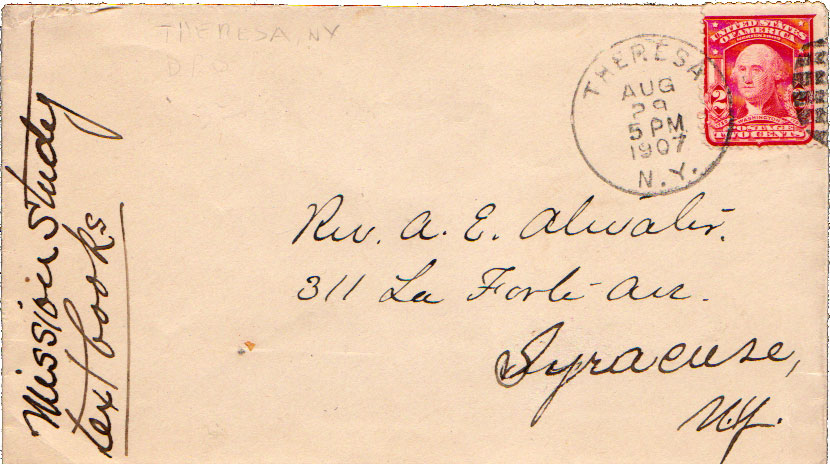 THERESA NY
Mission Study
text books
THERESA
AUG
29
5 PM
1907
N.Y.
UNITED STATES
OF AMERICA
2
POSTAGE
TWO CENTS
Rev. A. E. Atwater.
311 La Forte Ave.
Syracuse,
N.Y.